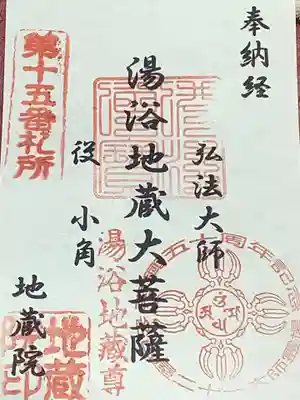 奉納経
弘法大師
湯浴地蔵大菩薩
役小角
地蔵院
第十五番札所
湯浴地蔵尊
地蔵院印